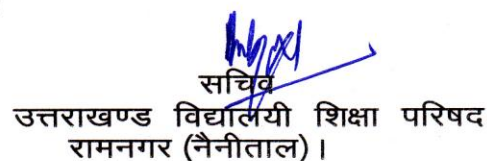 सचिव
उत्तराखण्ड विद्यालयी शिक्षा परिषद
रामनगर (नैनीताल)।